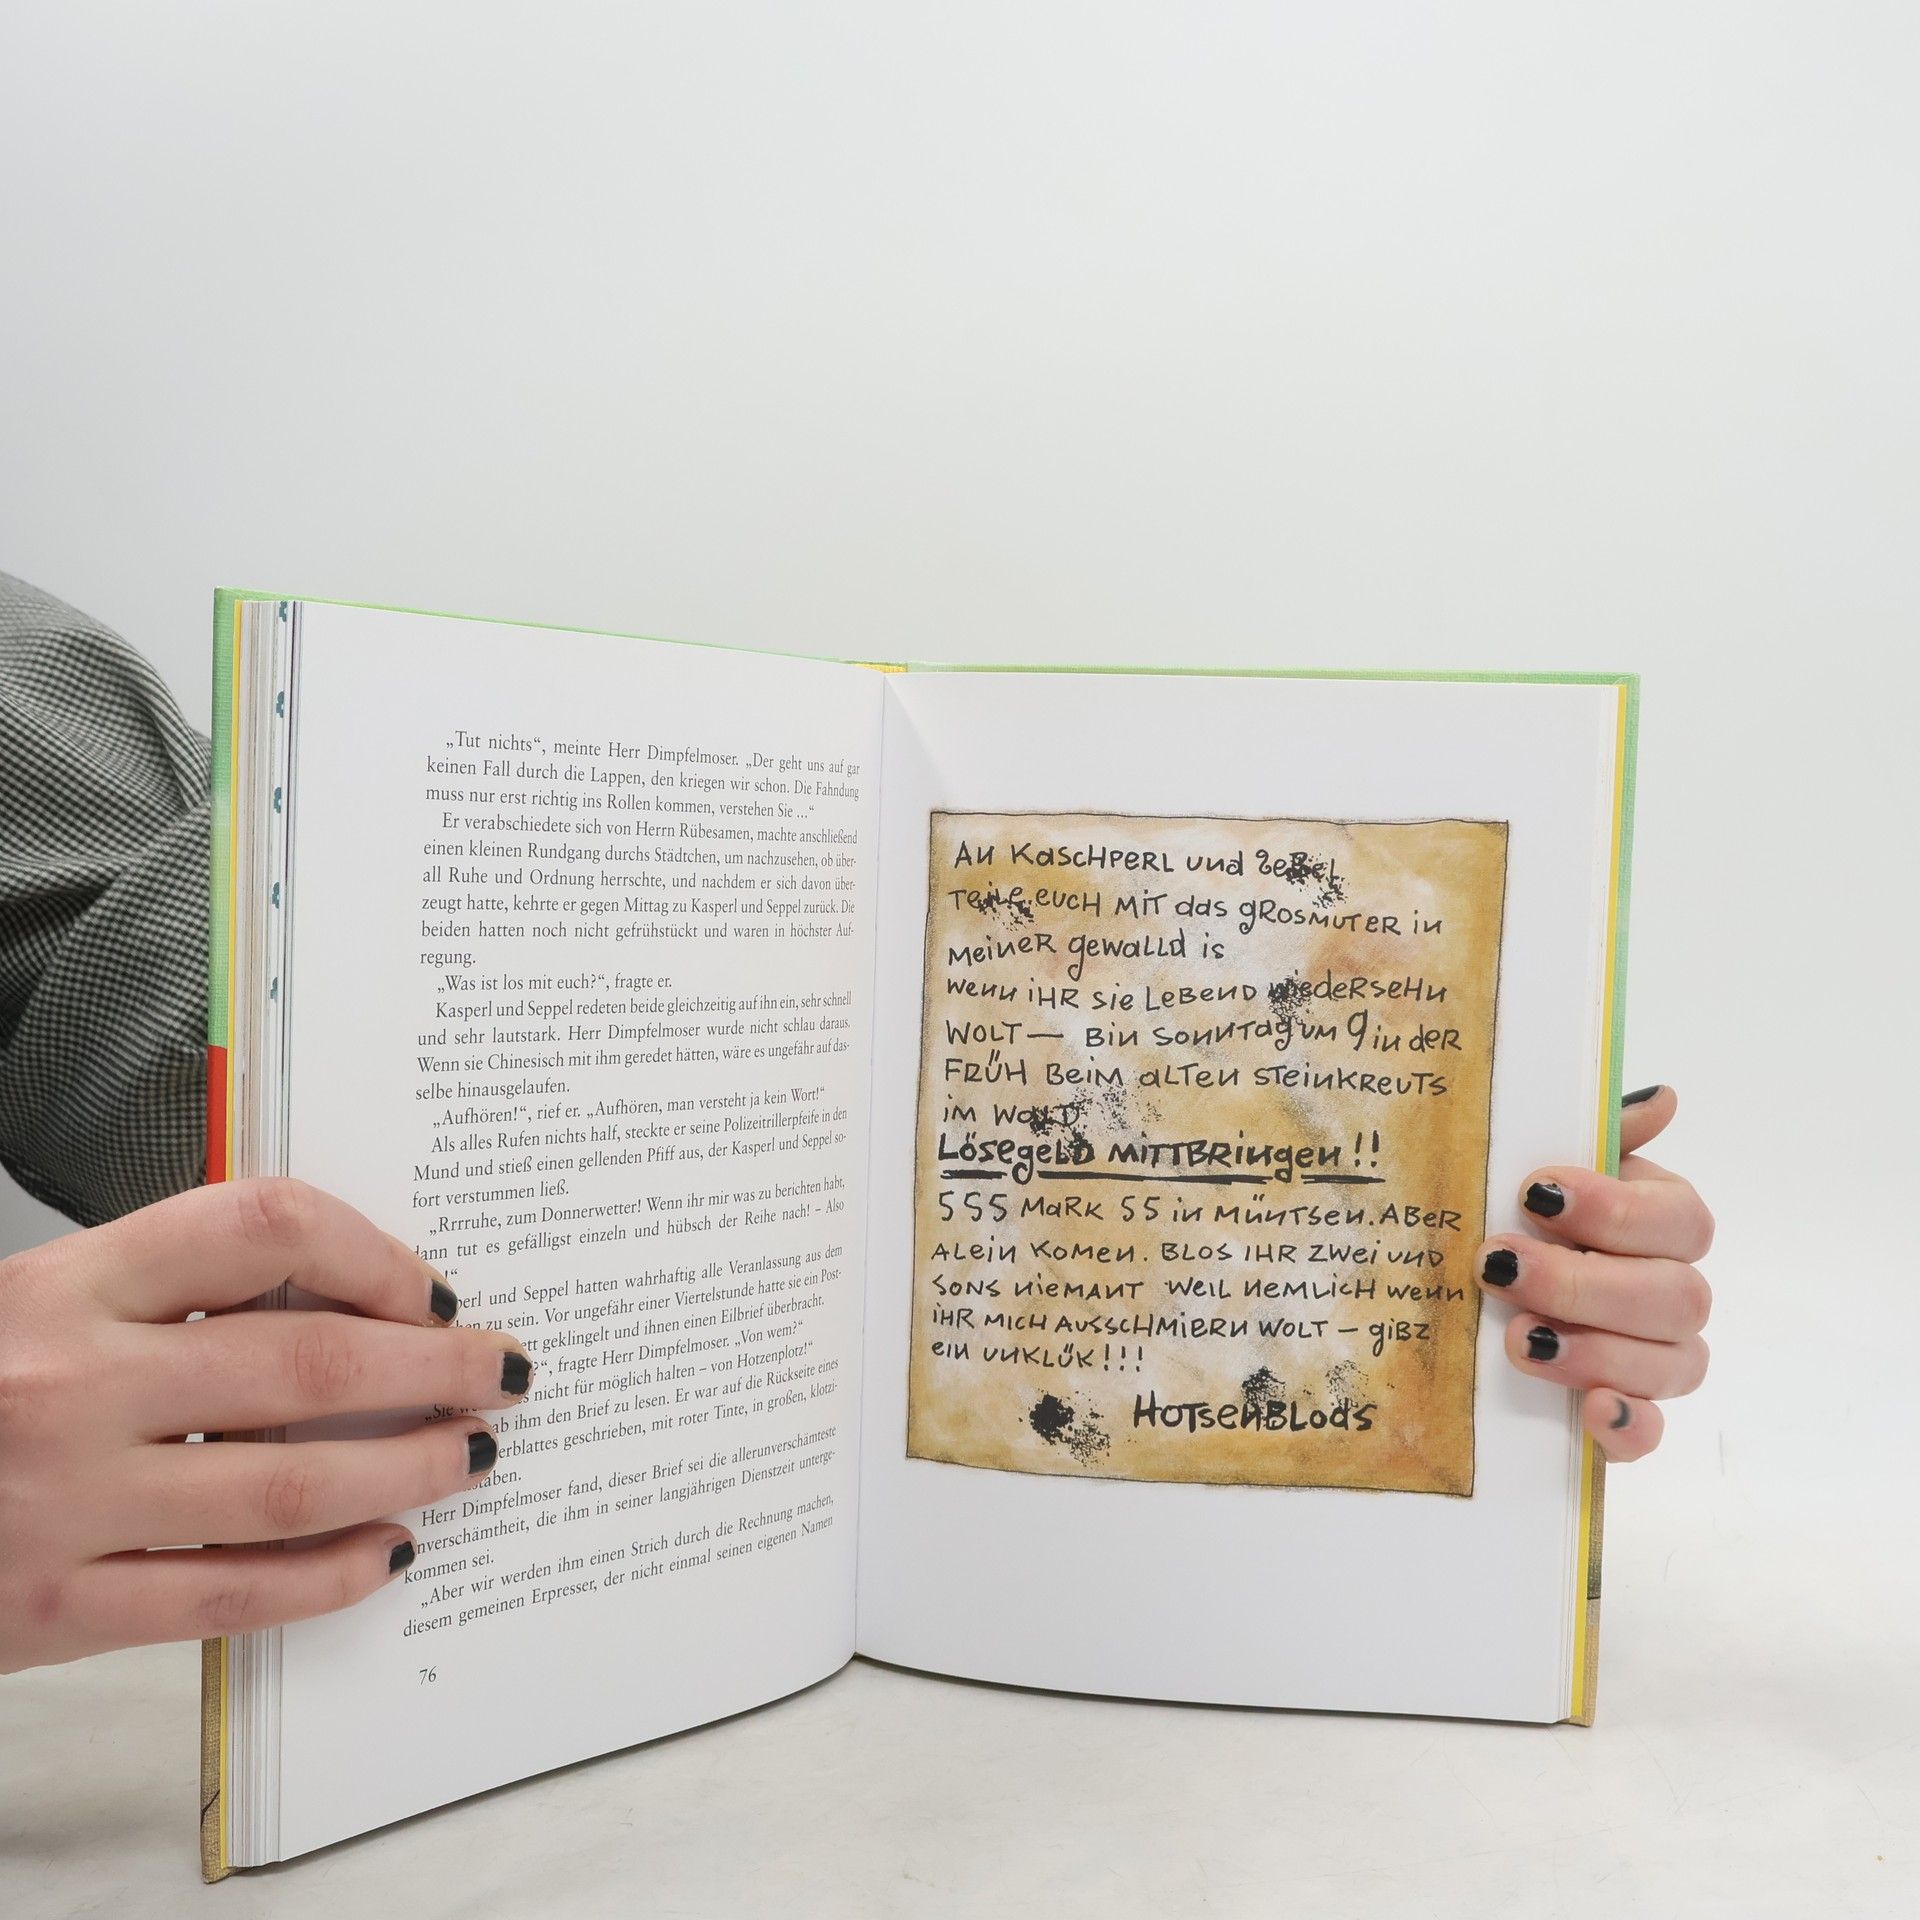 „Tut nichts“, meinte Herr Dimpfelmoser. „Der geht uns auf gar
keinen Fall durch die Lappen, den kriegen wir schon. Die Fahndung
muss nur erst richtig ins Rollen kommen, verstehen Sie ...“
Er verabschiedete sich von Herrn Rübesamen, machte anschließend
einen kleinen Rundgang durchs Städtchen, um nachzusehen, ob über-
all Ruhe und Ordnung herrschte, und nachdem er sich davon über-
zeugt hatte, kehrte er gegen Mittag zu Kasperl und Seppel zurück. Die
beiden hatten noch nicht gefrühstückt und waren in höchster Auf-
regung.
„Was ist los mit euch?“, fragte er.
Kasperl und Seppel redeten beide gleichzeitig auf ihn ein, sehr schnell
und sehr lautstark. Herr Dimpfelmoser wurde nicht schlau daraus.
Wenn sie Chinesisch mit ihm geredet hätten, wäre es ungefähr auf das-
selbe hinausgelaufen.
„Aufhören!“, rief er. „Aufhören, man versteht ja kein Wort!“
Als alles Rufen nichts half, steckte er seine Polizeitrillerpfeife in den
Mund und stieß einen gellenden Pfiff aus, der Kasperl und Seppel so-
fort verstummen ließ.
„Rrrruhe, zum Donnerwetter! Wenn ihr mir was zu berichten habt,
dann tut es gefälligst einzeln und hübsch der Reihe nach! – Also
!“
und Seppel hatten wahrhaftig alle Veranlassung aus dem
zu sein. Vor ungefähr einer Viertelstunde hatte sie ein Post-
geklingelt und ihnen einen Eilbrief überbracht.
fragte Herr Dimpfelmoser. „Von wem?“
„Sie nicht für möglich halten – von Hotzenplotz!“
ihm den Brief zu lesen. Er war auf die Rückseite eines
geschrieben, mit roter Tinte, in großen, klotzi-
Herr Dimpfelmoser fand, dieser Brief sei die allerunverschämteste
Unverschämtheit, die ihm in seiner langjährigen Dienstzeit unterge-
kommen sei.
„Aber wir werden ihm einen Strich durch die Rechnung machen,
diesem gemeinen Erpresser, der nicht einmal seinen eigenen Namen
76
AN KaSCHPERL und
Teile EUCH MiT das gROSMUTER in
MeineR gewaLLd is
wenn iHR Sie LeBenD wiedeRSeHn
WOLT — Bin SONNTag um 9 in deR
FRÜH BeiM aLTen STeinKReuTS
im WaLD
LÖSegeLD MiTTBRingen!!
555 MaRK 55 in MÜNTSen. ABeR
ALein KOMen. BLOS IHR ZWei UND
SONS NieMANT WeiL NeMLiCH Wenn
iHR MiCH AUSSCHMieRN WOLT — giBZ
ein UNKLÜK!!!
HOTSeNBLOdS